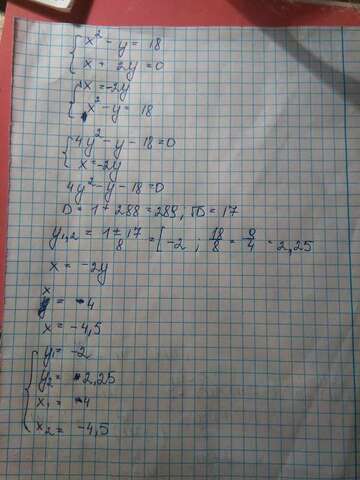 x² - y = 18
x + 2y = 0
x = -2y
x² - y = 18
4y² - y - 18 = 0
x = -2y
4y² - y - 18 = 0
D = 1 + 288 = 289; √D = 17
y₁,₂ = 1 ± 17 / 8 = [ -2 ; 18/8 = 9/4 = 2,25
x = -2y
x = -4
x = -4,5
y₁ = -2
y₂ = 2,25
x₁ = -4
x₂ = -4,5